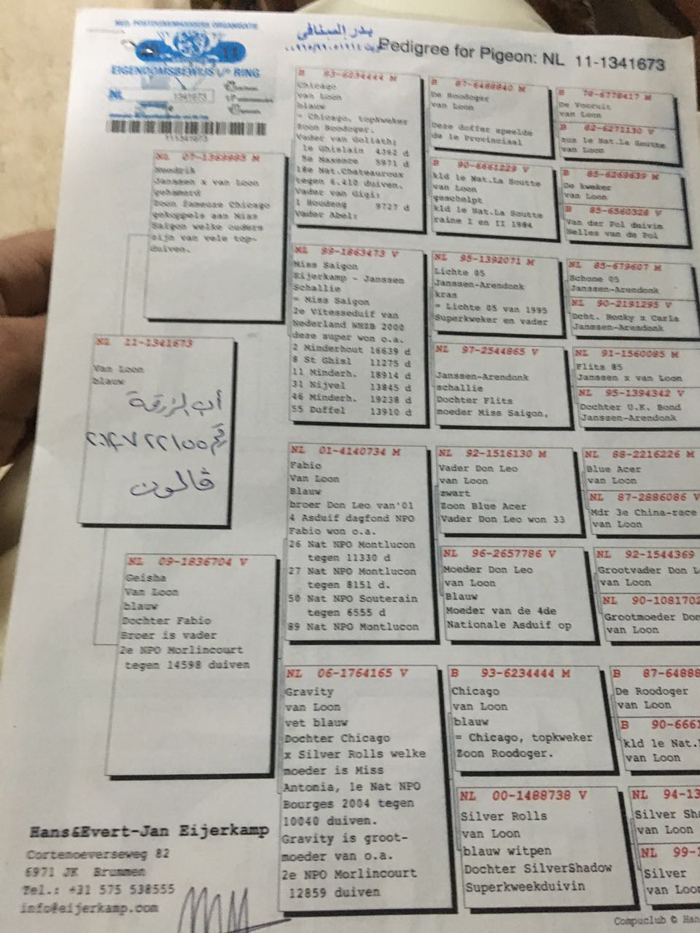 NED. POSTDUIVENHOUDERS ORGANISATIE
EIGENDOMSBEWIJS V/D RING
NL 1341673
111341673
بدر السنافي
Pedigree for Pigeon: NL 11-1341673
NL 11-1341673
Van Loon
blauw
أب الزرقة
رقم
قالون
NL 07-1388985 M
Hendrik
Janssen x van Loon
gehamerd
Zoon fameuze Chicago
gekoppeld aan Miss
Saigon welke ouders
zijn van vele top-
duiven.
NL 09-1836704 V
Geisha
Van Loon
blauw
Dochter Fabio
Broer is vader
2e NPO Morlincourt
tegen 14598 duiven
B 93-6234444 M
Chicago
van Loon
blauw
= Chicago, topkweker
Zoon Roodoger.
Vader van Goliath;
1e Ghislain 4362 d
5e Naxence 5971 d
18e Nat.Chateauroux
tegen 6.410 duiven.
Vader van Gigi:
1 Houdeng 9727 d
Vader Abel;
NL 99-1863473 V
Miss Saigon
Eijerkamp - Janssen
Schallie
= Miss Saigon
2e Vitesseduif van
Nederland WHZB 2000
deze super won o.a.
2 Minderhout 16639 d
8 St Ghisl 11275 d
11 Minderh. 18914 d
31 Nijvel 13845 d
46 Minderh. 19238 d
55 Duffel 13910 d
NL 01-4140734 M
Fabio
Van Loon
Blauw
broer Don Leo van'01
4 Asduif dagfond NPO
Fabio won o.a.
26 Nat NPO Montlucon
tegen 11330 d
27 Nat NPO Montlucon
tegen 8151 d.
50 Nat NPO Souterain
tegen 6555 d
89 Nat NPO Montlucon
NL 06-1764165 V
Gravity
van Loon
vet blauw
Dochter Chicago
x Silver Rolls welke
moeder is Miss
Antonia, 1e Nat NPO
Bourges 2004 tegen
10040 duiven.
Gravity is groot-
moeder van o.a.
2e NPO Morlincourt
12859 duiven
B 87-6488840 M
De Roodoger
van Loon
Deze doffer speelde
de 1e Provinciaal
B 90-6661229 V
kld 1e Nat.La Soutte
van Loon
geschelpt
kld 1e Nat.La Soutte
raine I en II 1984
NL 95-1392071 M
Lichte 05
Janssen-Arendonk
kras
= Lichte 05 van 1995
Superkweker en vader
NL 97-2544865 V
Janssen-Arendonk
schallie
Dochter Flits
moeder Miss Saigon,
NL 92-1516130 M
Vader Don Leo
van Loon
zwart
Zoon Blue Acer
Vader Don Leo won 33
NL 96-2657786 V
Moeder Don Leo
van Loon
Blauw
Moeder van de 4de
Nationale Asduif op
B 93-6234444 M
Chicago
van Loon
blauw
= Chicago, topkweker
Zoon Roodoger.
NL 00-1488738 V
Silver Rolls
van Loon
blauw witpen
Dochter SilverShadow
Superkweekduivin
B 78-6778417 M
De Vooruit
van Loon
B 82-6271130 V
zus 1e Nat.La Soutte
van Loon
B 85-6269639 M
De kweker
van Loon
B 85-6560328 V
Van der Pol duivin
Nelles van de Pol
NL 85-679607 M
Schone 05
Janssen-Arendonk
NL 90-2191295 V
Dcht. Rocky x Carla
Janssen-Arendonk
NL 91-1560085 M
Flits 85
Janssen x van Loon
NL 95-1394342 V
Dochter U.K. Bond
Janssen-Arendonk
NL 88-2216226 M
Blue Acer
van Loon
NL 87-2886086 V
Mdr 3e China-race
van Loon
NL 92-1544369
Grootvader Don L
van Loon
NL 90-1081702
Grootmoeder Don
van Loon
B 87-64888
De Roodoger
van Loon
B 90-6661
kld 1e Nat.
van Loon
NL 94-13
Silver Sha
van Loon
NL 99-1
Silver
van Loo
Hans&Evert-Jan Eijerkamp
Cortenoeverseweg 82
6971 JK Brummen
Tel.: +31 575 538555
info@eijerkamp.com
Compuclub © Han